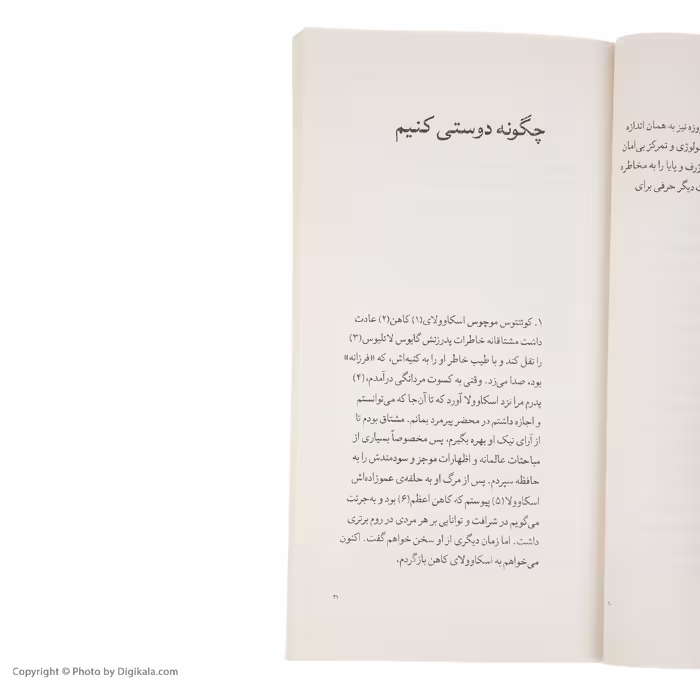 چگونه دوستی کنیم
۱. کوئنتوس موچوس اسکاوولای(۱) کاهن(۲) عادت
داشت مشتاقانه خاطرات پدرزنش گایوس لائلیوس(۳)
را نقل کند و با طیب خاطر او را به کنیه‌اش، که «فرزانه»
بود، صدا می‌زد. وقتی به کسوت مردانگی درآمدم،(۴)
پدرم مرا نزد اسکاوولا آورد که تا آن‌جا که می‌توانستم
و اجازه داشتم در محضر پیرمرد بمانم. مشتاق بودم تا
از آرای نیک او بهره بگیرم، پس مخصوصاً بسیاری از
مباحثات عالمانه و اظهارات موجز و سودمندش را به
حافظه سپردم. پس از مرگ او به حلقه‌ی عموزاده‌اش
اسکاوولا(۵) پیوستم که کاهن اعظم(۶) بود و به‌جرئت
می‌گویم در شرافت و توانایی بر هر مردی در روم برتری
داشت. اما زمان دیگری از او سخن خواهم گفت. اکنون
می‌خواهم به اسکاوولای کاهن بازگردم.
۲۱
وزه نیز به همان اندازه
ولوژی و تمرکز بی‌امان
ژرف و پایا را به مخاطره
دیگر حرفی برای
Copyright © Photo by Digikala.com